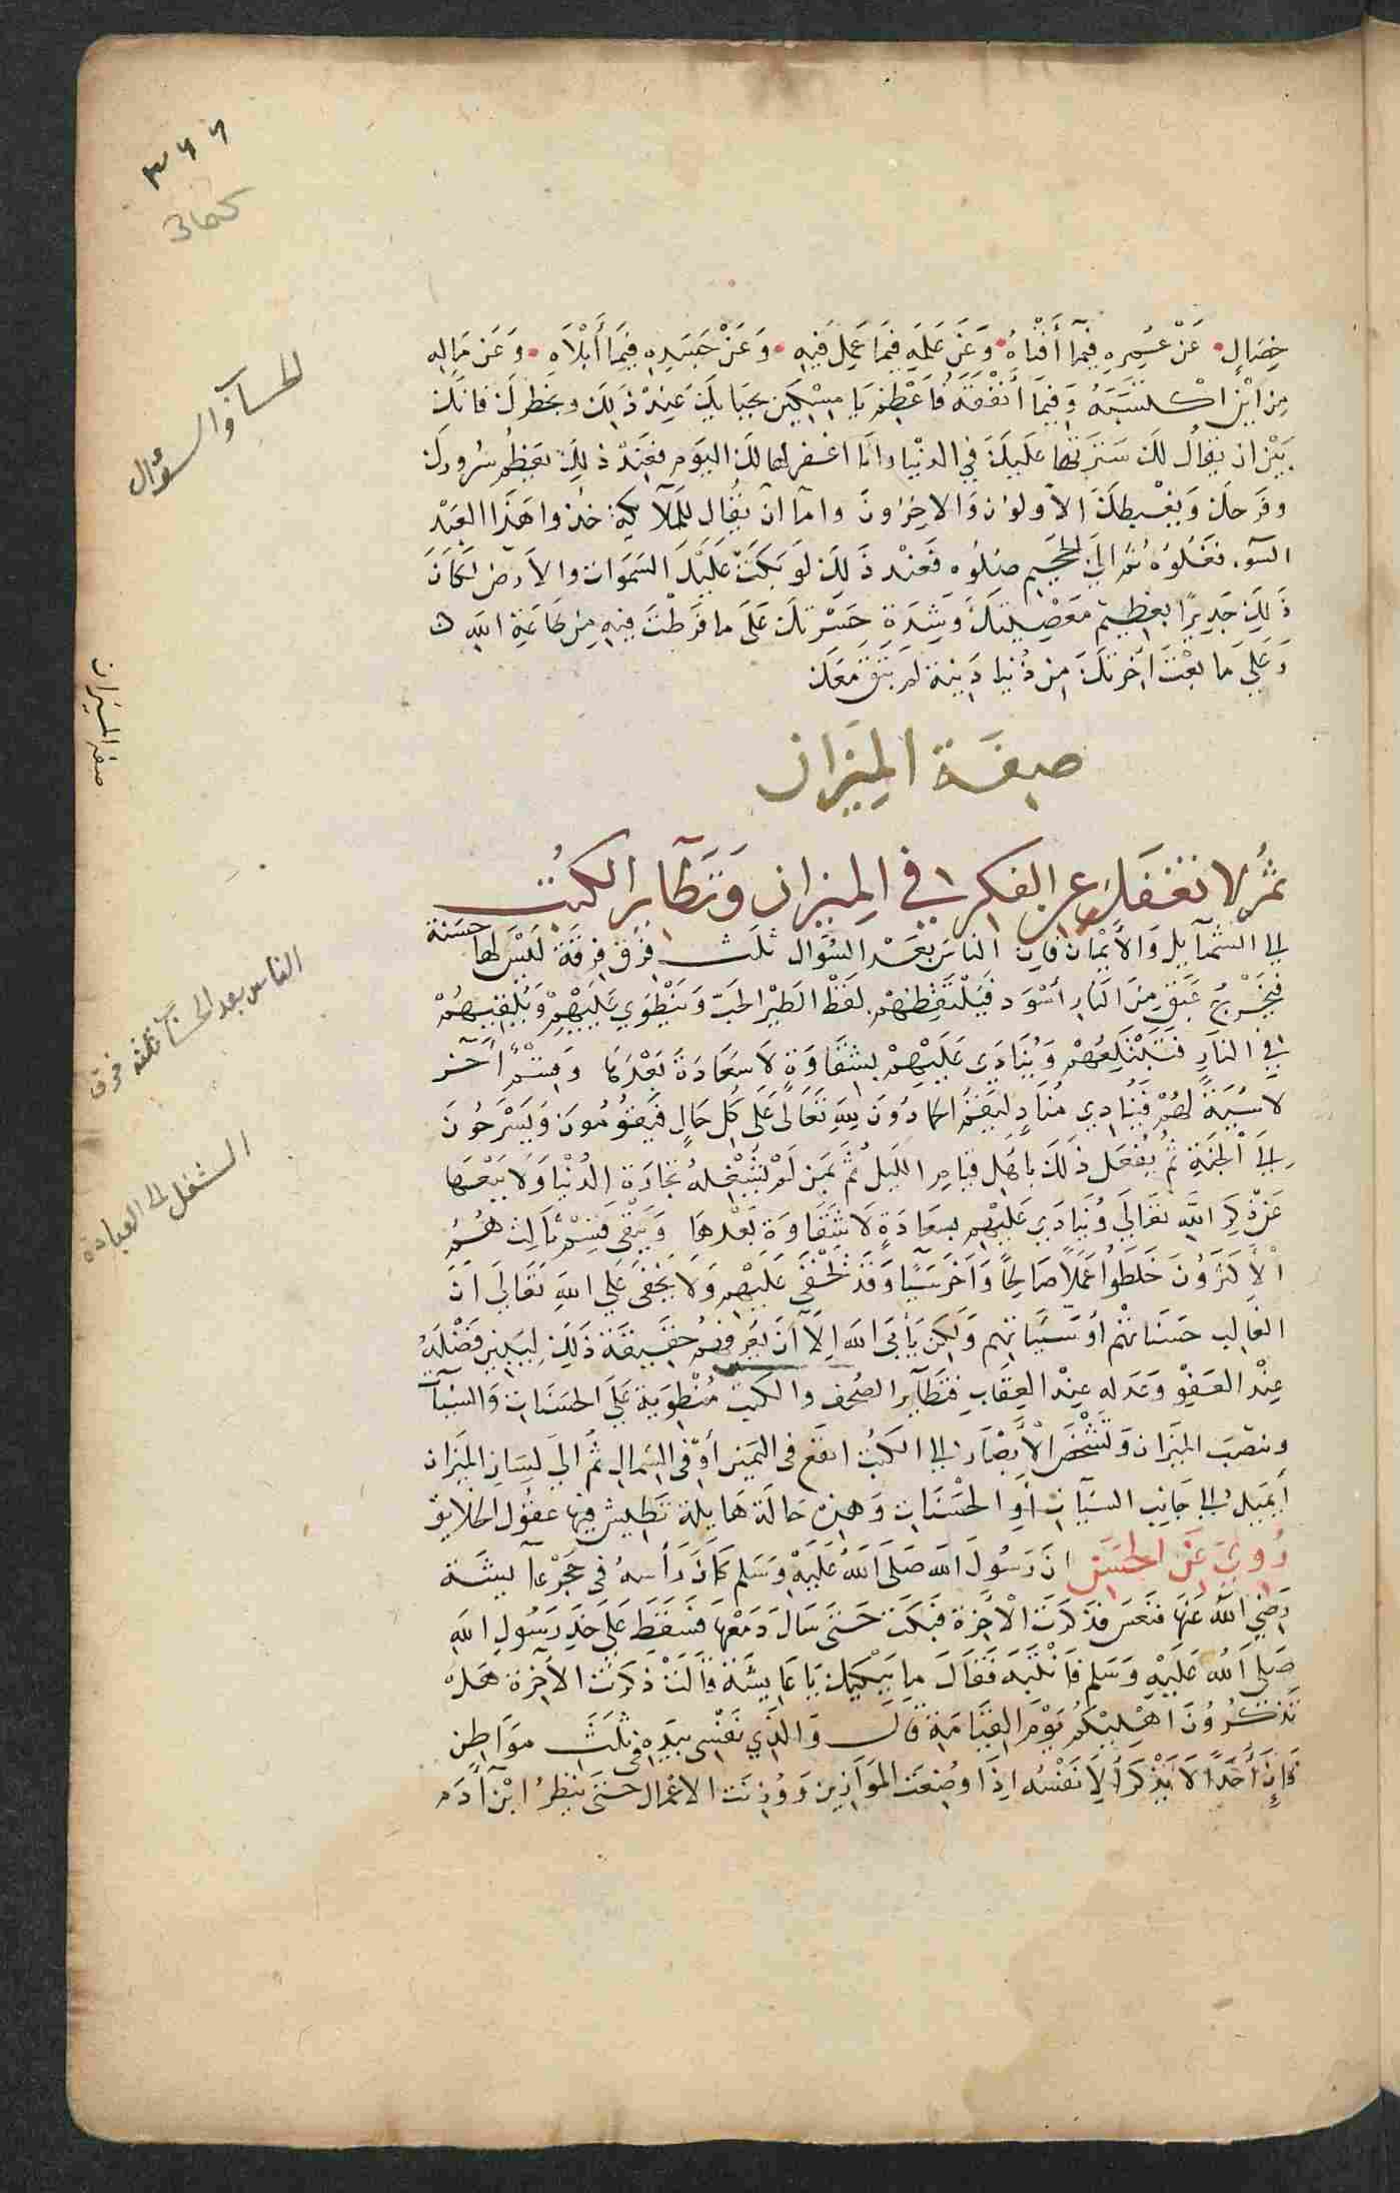 ٣٦٦
خِصَالٍ عَنْ عُمِرِهِ فِيمَا أَفْنَاهُ وَعَنْ عَلْمِهِ فِيمَا عَمِلَ فِيهِ وَعَنْ جَسَدِهِ فِيمَا أَبْلَاهُ وَعَنْ مَالِهِ
مِنْ اَيْنَ اكْتَسَبَهُ وَفِيمَا أَنْفَقَهُ فَاَعْظِمْ يَا مِسْكِينُ بِحَيَائِكَ عِنْدَ ذَلِكَ وبخطرك فانك
بَيْنَ ان يُقَالَ لَكَ سَتَرْتُهَا عَلَيْكَ فِي الدنْيَا وانَا اغفرها لك اليَوم فعِنْدَ ذلِكَ يَعْظُم سُرُورك
وفَرَحك وَيَغْبِطكَ الاَولون وَالاخِرُونَ واما انْ يُقَال لِلملَآئكةِ خذُوا هَذَا العَبْدَ
السوء فغُلّوهُ ثُمَّ اِلَى الجَحِيمِ صَلّوه فَعنْد ذَلِكَ لَوْ بَكَتْ عَلَيْكَ السَمَوات والاَرض لكَانَ
ذَلِكَ جَدِيرًا بعِظَمِ مَعْصِيتِكَ وَشِدَةِ حَسْرتك عَلَى ما فَرطتَ فِيهِ مِن طَاعَةِ اللهِ
وَعَلَى مَا بِعْتَ اخَرتكَ مِنْ دُنيا دَنِيَة لَم تبْقَ مَعَكَ
صِفَة المِيزَان
ثُمَّ لا تغفَلْ عن الفكر في المِيزان وَتَطَايُر الكتب
الى الشمَآئِل وَالأَيْمان فَاِنَّ الناسَ بَعْدَ السُؤال ثلَث فِرَق فِرقَة لَيْسَ لَهَا حَسَنة
فيَخْرج عُنق مِنَ النَارِ أسْوَد فَيَلْتقِطهُمْ لقظَ الطَيْرِ الحَبّ وَيَنْطَوِي عَلَيْهِمْ وَيُلْقِيهُمْ
في النارِ فَتَبْتَلِعُهُمْ وَيُنَادَى عَلَيْهِمْ بِشقَاوَةٍ لَا سَعَادَةَ بَعْدَهَا وَقِسْمٌ آخَر
لا سَيئَةَ لَهُمْ فَيُنَادِي مُنَادٍ لِيَقُمْ الحمادُونَ لِلَّهِ تَعَالَى عَلَى كُل حَالٍ فَيقُومُونَ وَيَسْرَحُونَ
اِلَى الْجَنَةِ ثم يُفْعَل ذَلكَ باَهْل قيَام الليلِ ثُمَّ بِمَن لَمْ تشْغِلهُ تجَارَة الدُنْيَا وَلَا بَيْعُهَا
عَنْ ذِكْرِ اللّهِ تعَالَى وَيُنَادَى عَلَيْهِم بسعَادَةٍ لَا شقَاوَة بَعْدهَا وَيَبْقَى قِسْم ثالِث هُمُ
الْأَكثرُونَ خَلَطُوا عَمَلًا صَالِحًا وَآخَر سَيِّئًا وَقَدْ يَخفى عَلَيْهِم وَلَا يَخْفَى عَلَى اللهِ تَعَالَى اَنَّ
الغالب حَسَناتهُم أوْ سَيِّئاتهم وَلَكِن يَأبَى الله اِلَّا أنْ يعَرفهُم حقيقَة ذَلِكَ لِيبين فَضْلهُ
عِنْد العَفْوِ وَعَدله عِنْد العِقَابِ فتَطَاير الصُحف والكتب مُنْطَوِية عَلَى الحسَنَاتِ وَالسيئآت
وينصَب المِيزَان وَتَشْخَص الْأَبْصَار الى الكتُب اتقع فى اليَمِين أوْ فى الشِمالِ ثُم الى لِسَان المِيزَان
أيَميل الى جَانِب السيّآت أوِ الحْسَنَات وَهذِهِ حَالَة هَايِلَة تَطِيش فِيهَا عقُول الخلائق
رُوِيَ عَنِ الحسَن انَّ رَسُولَ الله صَلَى اللهُ عَلَيْهِ وَسَلم كَانَ رَأسهُ فى حَجْر عآئِشَة
رَضِيَ اللهُ عَنْهَا فنَعَسَ فَذَكَرَت الْآخِرَة فبَكَتْ حَتى سَالَ دَمْعهَا فَسَقَطَ عَلَى خَد رَسُولِ اللهِ
صَلى اللهُ عَلَيْهِ وَسَلم فَانْتبَهَ فَقَالَ مَا يُبْكِيكِ يَا عَايِشَة قَالَتْ ذكرْت الآخِرَة هَل
تَذكُرُونَ اَهْلِيكُم يَوْمَ القِيَامَة قالَ وَالَّذي نَفْسِى بِيَدِهِ فى ثلَث مَوَاطِن
فَإِنَّ أَحَدًا لَا يَذْكر اِلاَ نَفْسُه اِذَا وُضِعَت المَوَازِين وَوُزِنَت الاعْمال حَتى ينظُرَ ابْن آدَم
الحساب والسؤال
صفة الميزان
الناس بعد الحساب ثلثه فرق
الشغل الى العبادة